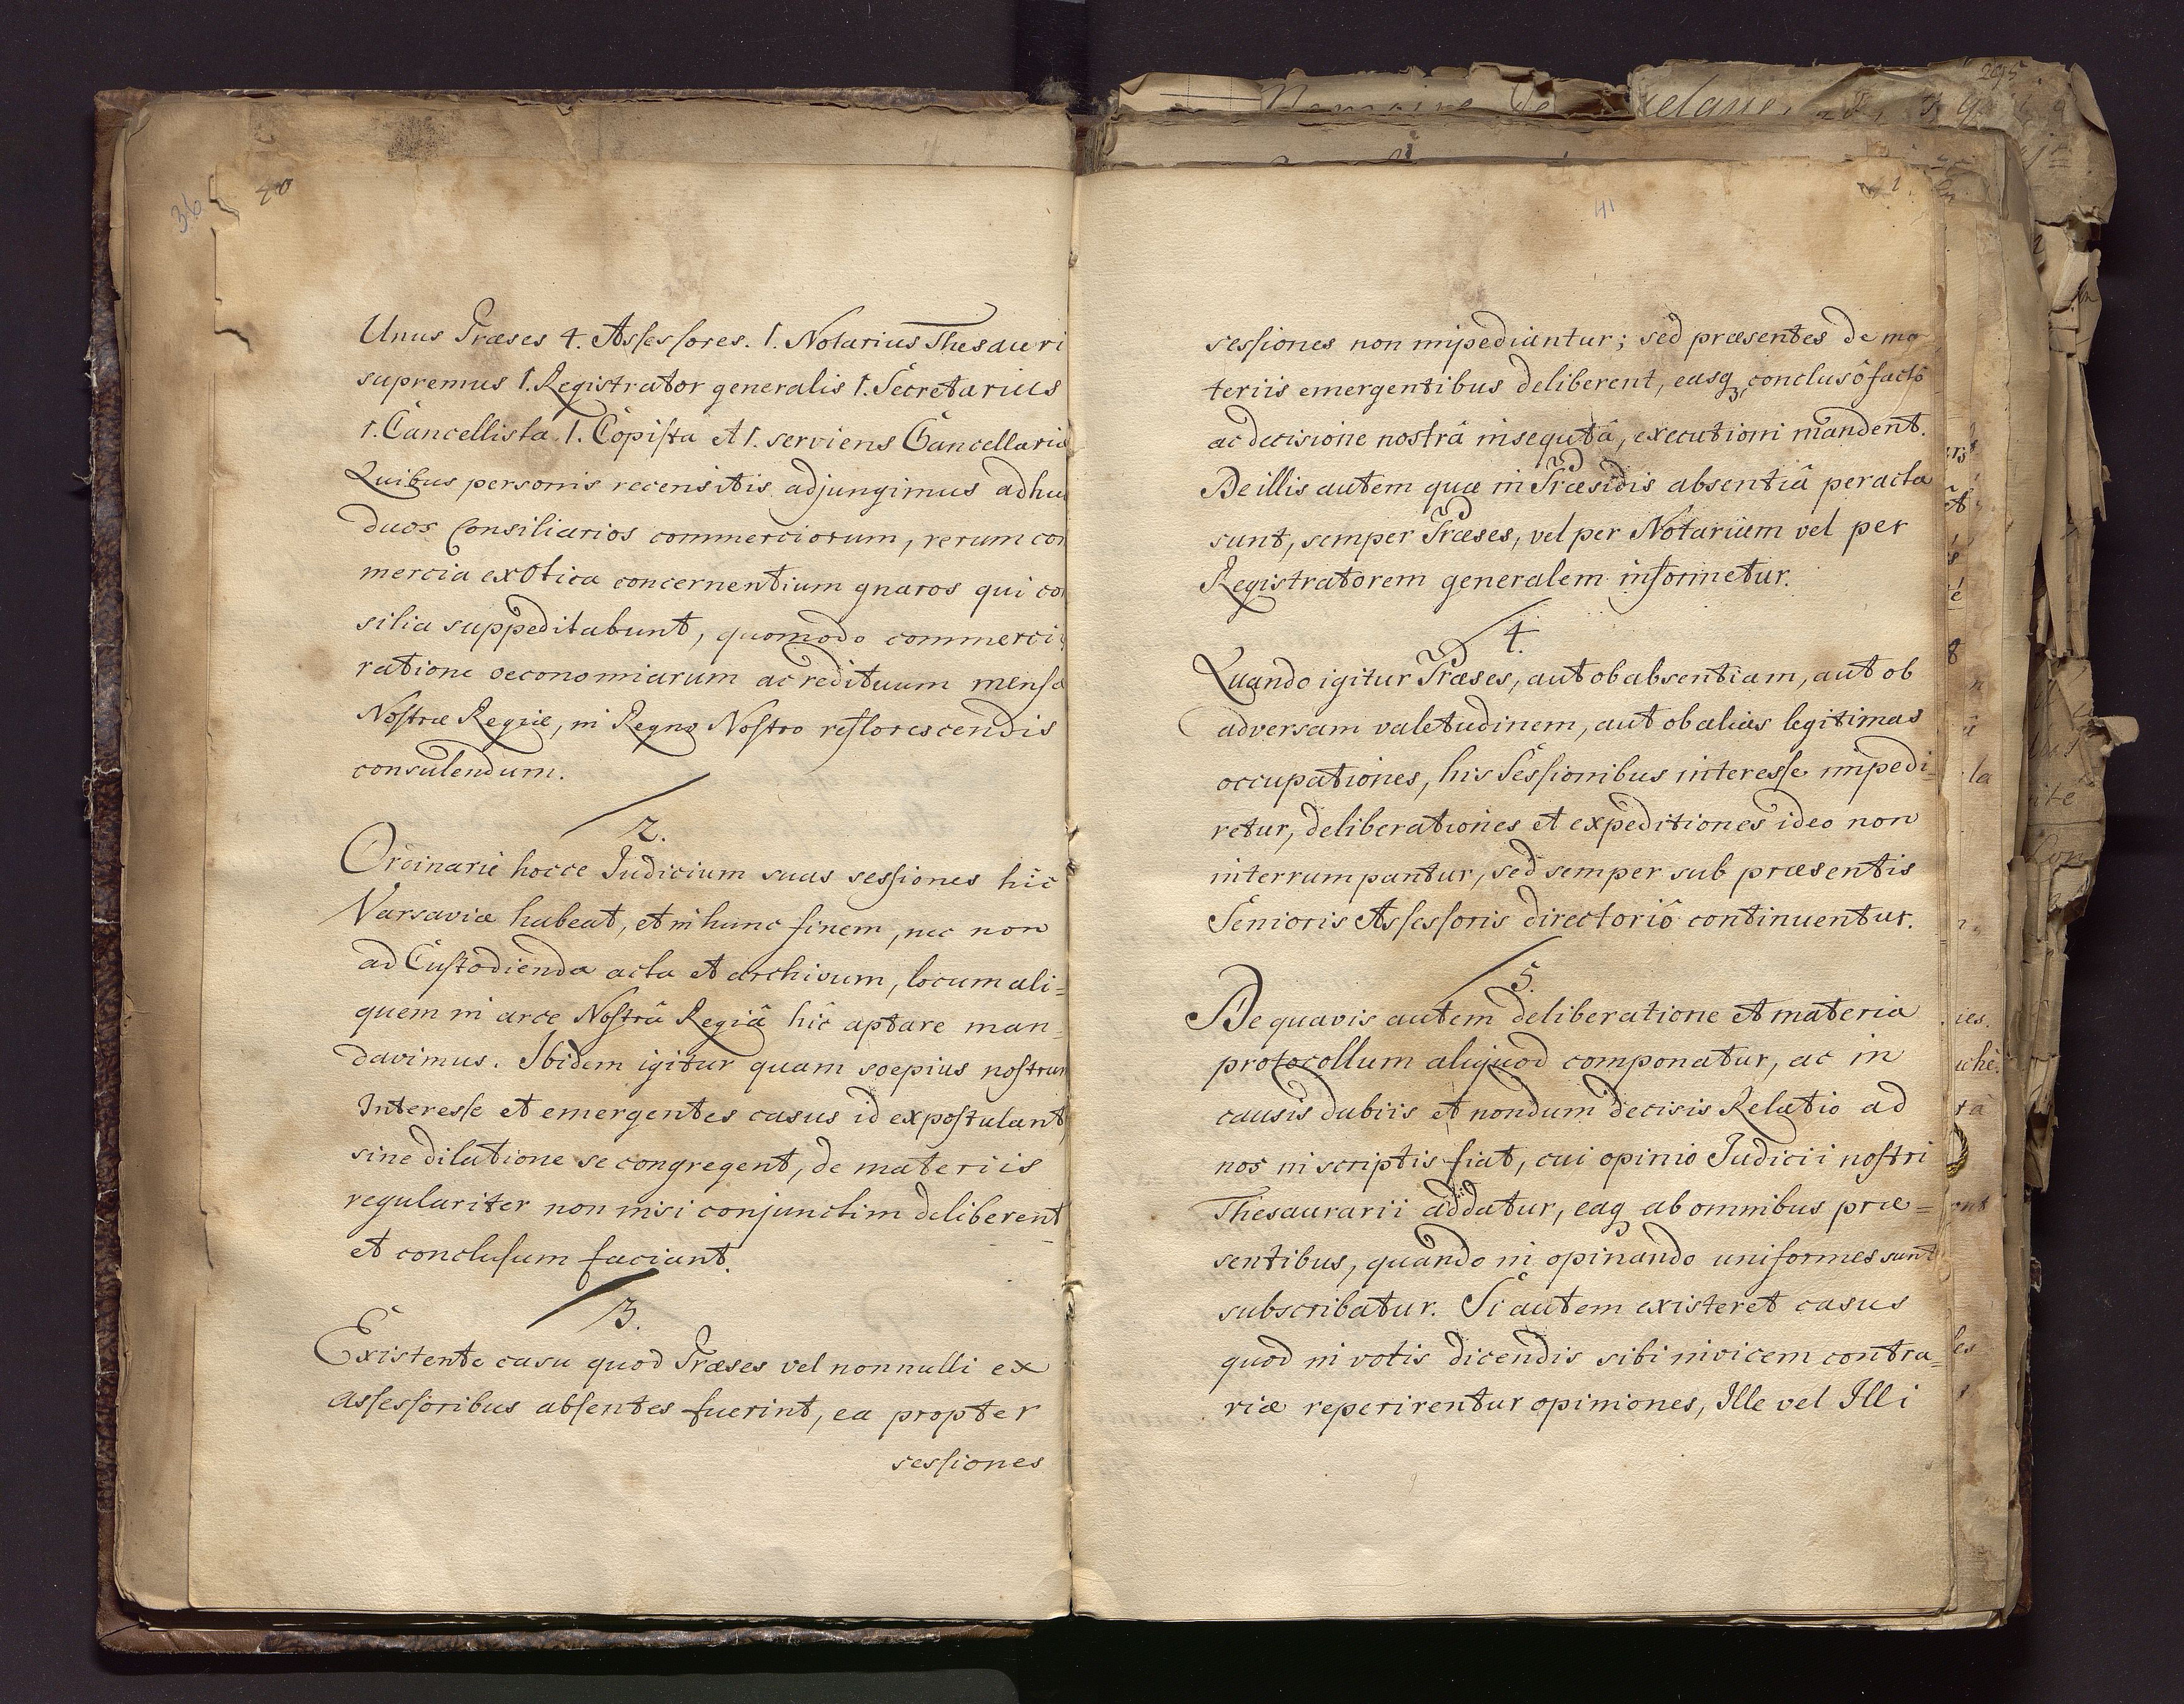 36
40
Unus Præses 4. Assessores. 1. Notarius Thesauri
supremus 1. Registrator generalis 1. Secretarius
1. Cancellista 1. Copista et 1. serviens Cancellariæ
Quibus personis recensitis adjungimus adhuc
duos Consiliarios commerciorum, rerum com
mercia exotica concernentium gnaros qui con
silia suppeditabunt, quomodo commerciis
ratione oeconomiarum ac redituum mensæ
Nostræ Regiæ, in Regno Nostro reflorescendis
consulendum.
2.
Ordinarie hocce Judicium suas sessiones hic
Varsaviæ habeat, et in hunc finem, nec non
ad Custodienda acta et archivum, locum ali=
quem in arce Nostrâ Regiâ hic aptare man=
davimus. Ibidem igitur quam soepius nostrum
Interesse et emergentes casus id expostulant,
sine dilatione se congregent, de materiis
regulariter non nisi conjunctim deliberent
et conclusum faciant.
3.
Existente casu quod Præses vel nonnulli ex
assessoribus absentes fuerint, ea propter
sessiones
41
sessiones non impediantur; sed præsentes de ma
teriis emergentibus deliberent, easq, conclusô factô
ac decisione nostrâ insequtâ, executioni mandent.
De illis autem quæ in Præsidis absentiâ peracta
sunt, semper Præses, vel per Notarium vel per
Registratorem generalem informetur.
4.
Quando igitur Præses, aut ob absentiam, aut ob
adversam valetudinem, aut ob alias legitimas
occupationes, his Sessionibus interesse impedi=
retur, deliberationes et expeditiones ideo non
interrumpantur, sed semper sub præsentis
Senioris Assessoris directoriô continuentur.
5.
De quavis autem deliberatione et materia
protocollum aliquod componatur, ac in
causis dubiis et nondum decisis Relatio ad
nos in scriptis fiat, cui opinio Judicii nostri
Thesaurarii addatur, eaq ab omnibus præ=
sentibus, quando in opinando uniformes sunt
subscribatur. Si autem existeret casus
quod in votis dicendis sibi invicem contra=
riæ reperirentur opiniones, Ille vel Illi